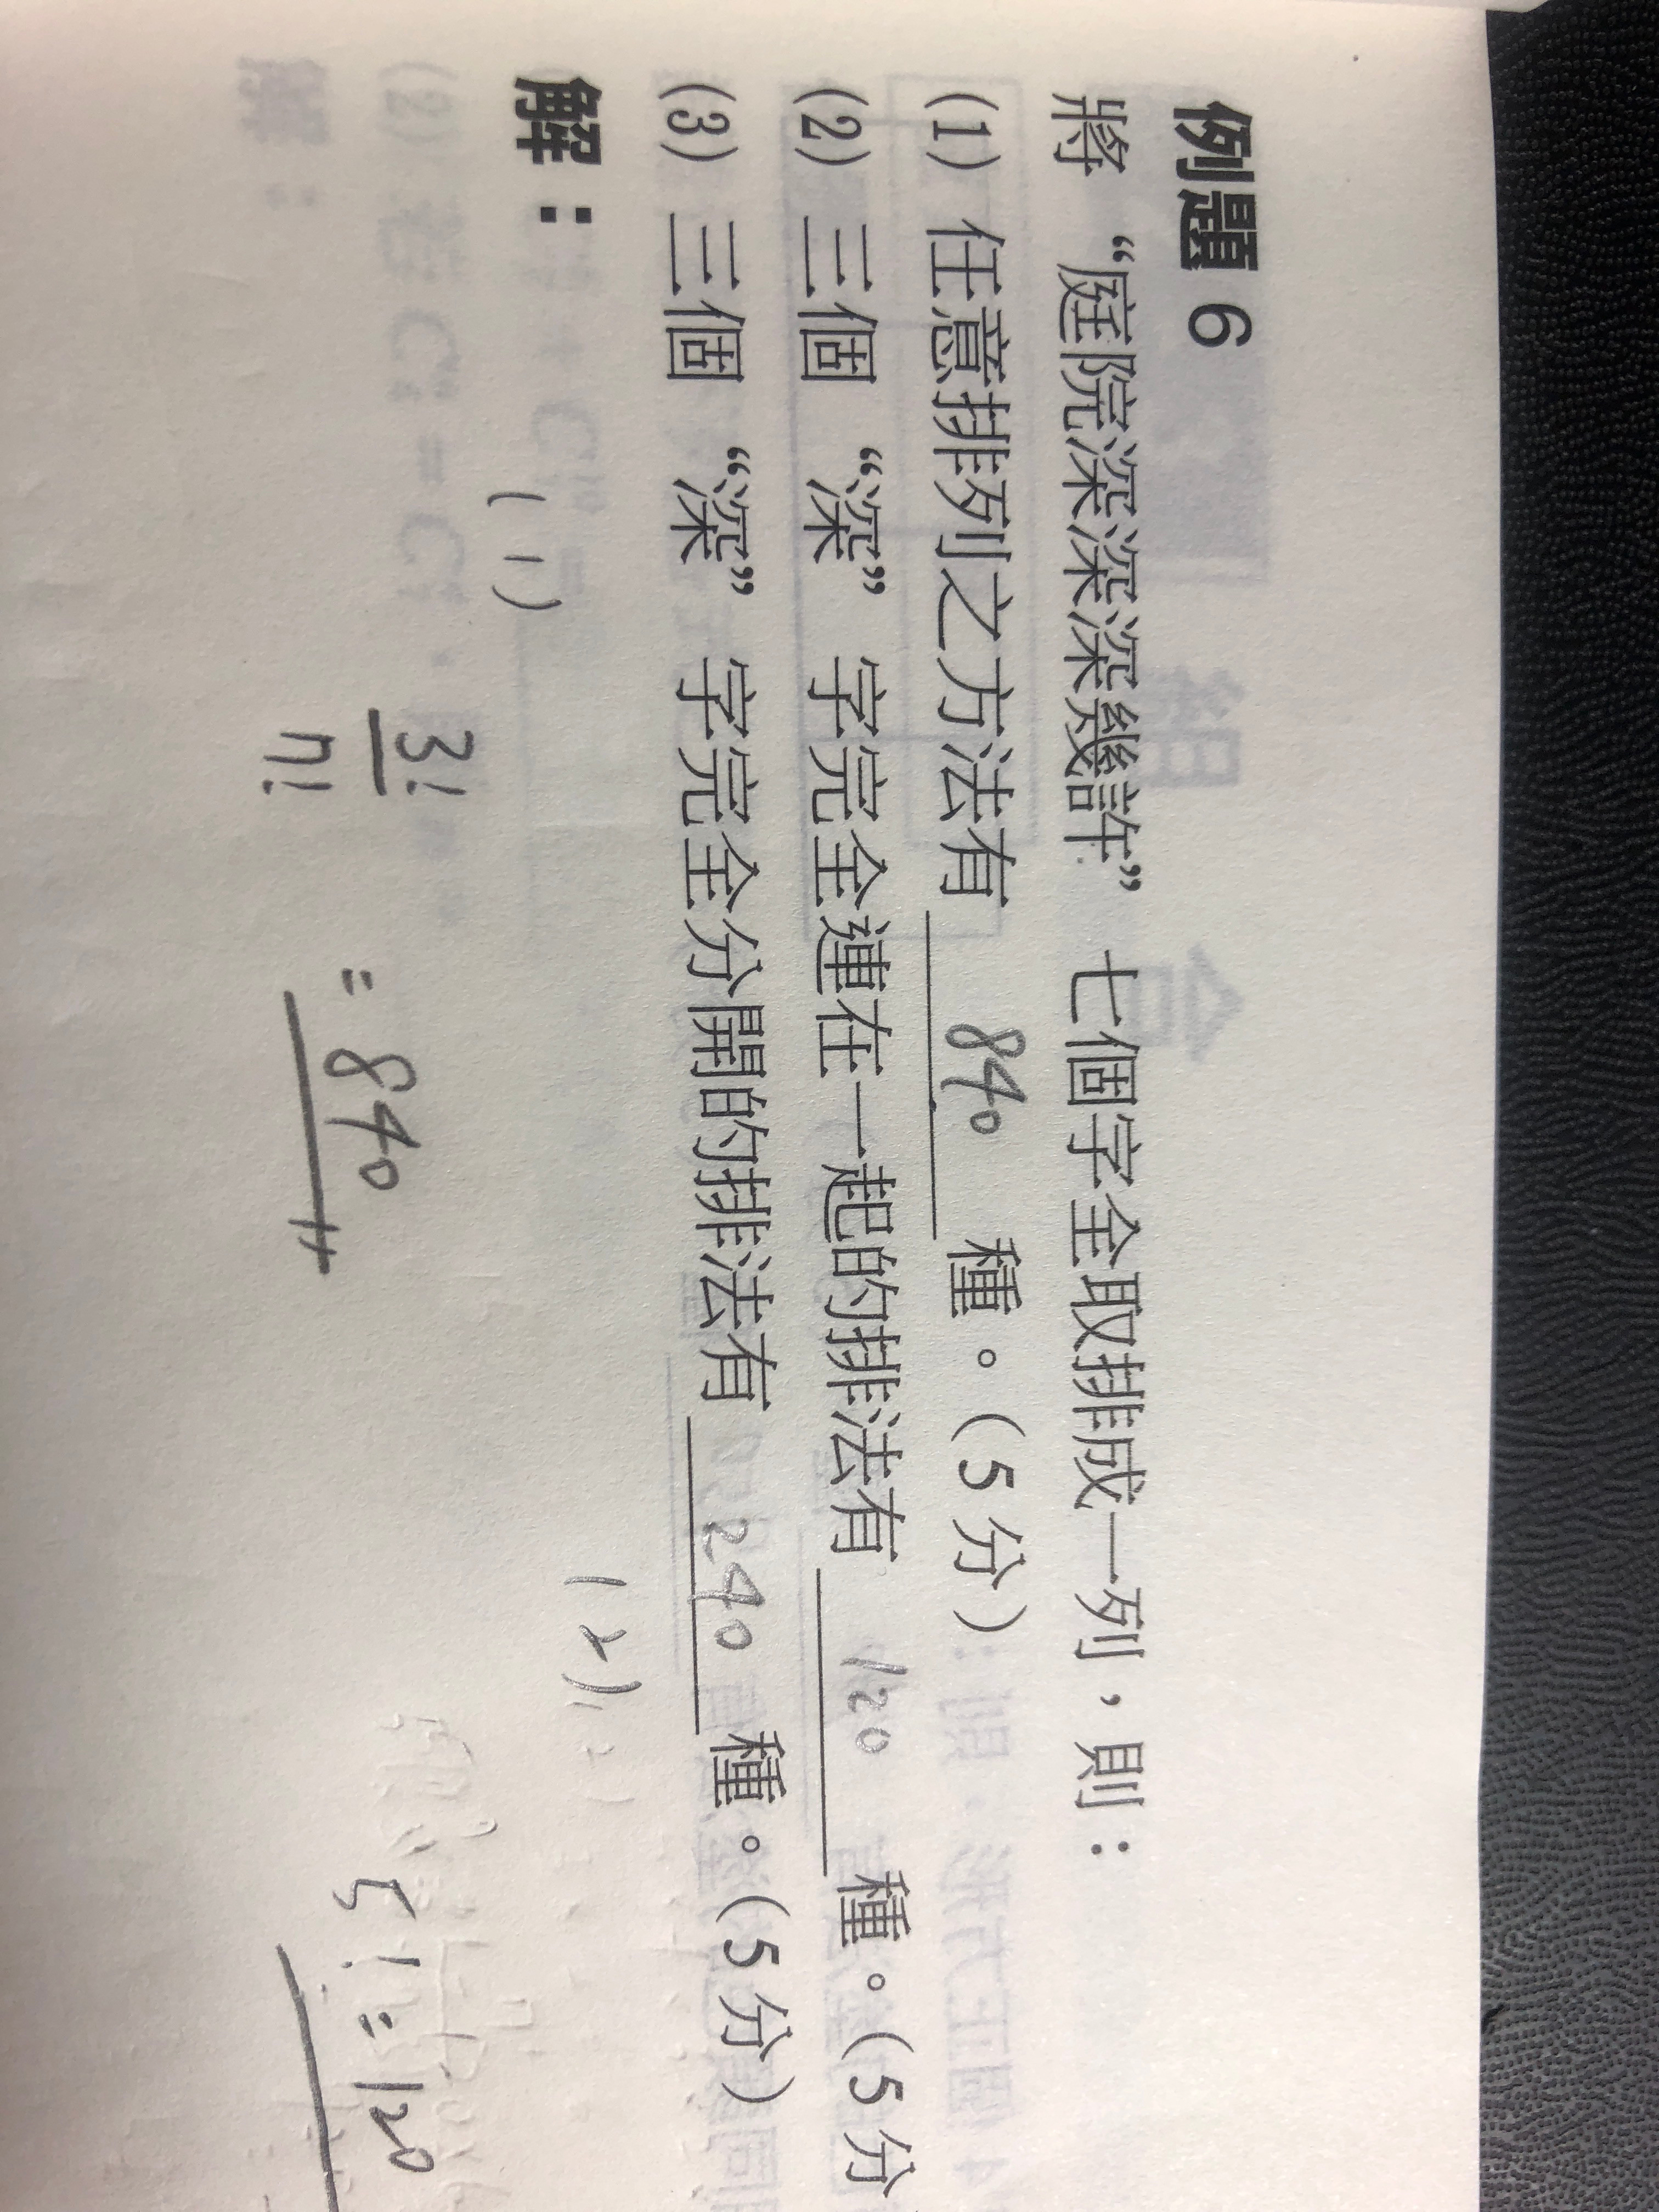 例題 6
將 “庭院深深深幾許” 七個字全取排成一列，則：
(1) 任意排列之方法有 840 種。(5 分)
(2) 三個 “深” 字完全連在一起的排法有 120 種。(5 分
(3) 三個 “深” 字完全分開的排法有 240 種。(5 分)
解：
(1)
3!
7!
= 840
(2)
5! = 120